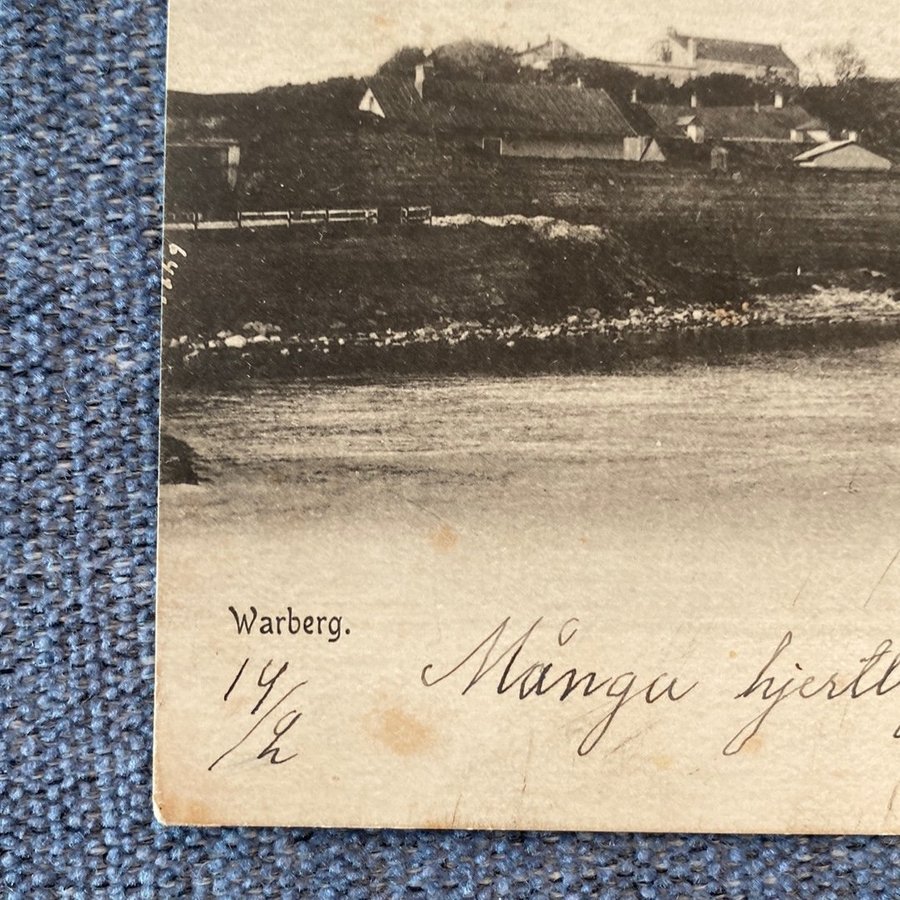 Warberg.
14/2
Många hjertl